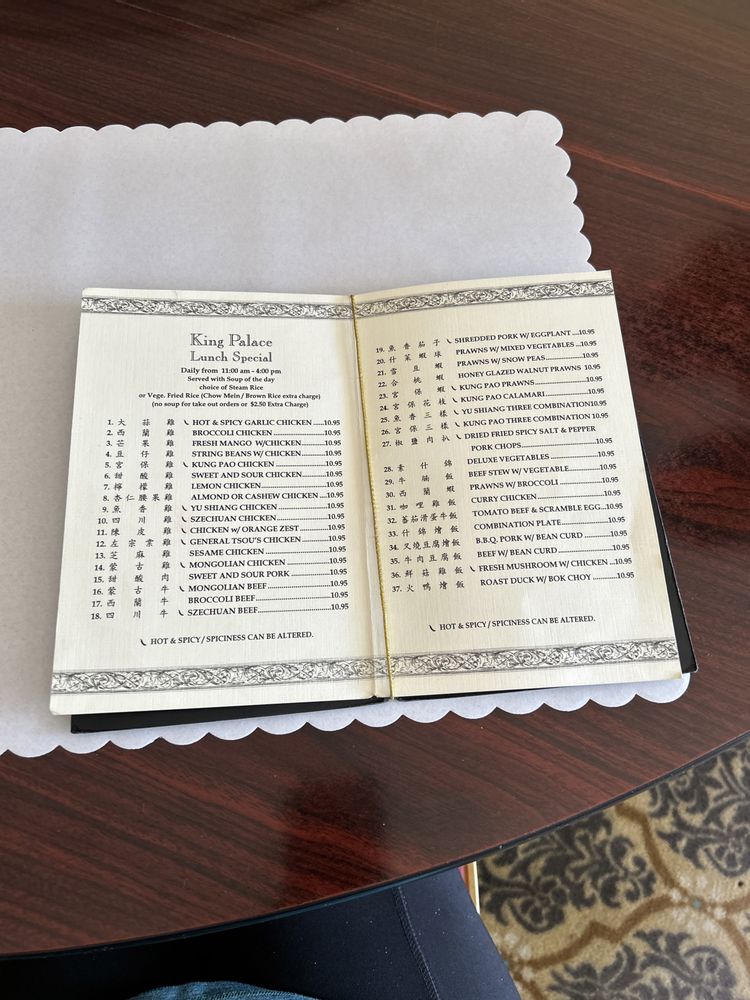 King Palace
Lunch Special
Daily from 11:00 am - 4:00 pm
Served with Soup of the day
choice of Steam Rice
or Vege. Fried Rice (Chow Mein / Brown Rice extra charge)
(no soup for take out orders or $2.50 Extra Charge)
1. 大蒜雞 HOT & SPICY GARLIC CHICKEN .....10.95
2. 西蘭雞 BROCCOLI CHICKEN ......................10.95
3. 芒果雞 FRESH MANGO W/CHICKEN............10.95
4. 豆仔雞 STRING BEANS W/ CHICKEN...........10.95
5. 宮保雞 KUNG PAO CHICKEN ......................10.95
6. 甜酸雞 SWEET AND SOUR CHICKEN............10.95
7. 檸檬雞 LEMON CHICKEN...........................10.95
8. 杏仁腰果雞 ALMOND OR CASHEW CHICKEN ...10.95
9. 魚香雞 YU SHIANG CHICKEN ......................10.95
10. 四川雞 SZECHUAN CHICKEN ......................10.95
11. 陳皮雞 CHICKEN w/ ORANGE ZEST ............10.95
12. 左宗棠雞 GENERAL TSOU'S CHICKEN............10.95
13. 芝麻雞 SESAME CHICKEN ..........................10.95
14. 蒙古雞 MONGOLIAN CHICKEN ..................10.95
15. 甜酸肉 SWEET AND SOUR PORK ..................10.95
16. 蒙古牛 MONGOLIAN BEEF..........................10.95
17. 西蘭牛 BROCCOLI BEEF..............................10.95
18. 四川牛 SZECHUAN BEEF..............................10.95
HOT & SPICY / SPICINESS CAN BE ALTERED.
19. 魚香茄子 SHREDDED PORK W/ EGGPLANT ....10.95
20. 什菜蝦球 PRAWNS W/ MIXED VEGETABLES ...10.95
21. 雪豆蝦 PRAWNS W/ SNOW PEAS..................10.95
22. 合桃蝦 HONEY GLAZED WALNUT PRAWNS 10.95
23. 宮保蝦 KUNG PAO PRAWNS..........................10.95
24. 宮保花枝 KUNG PAO CALAMARI......................10.95
25. 魚香三樣 YU SHIANG THREE COMBINATION10.95
26. 宮保三樣 KUNG PAO THREE COMBINATION 10.95
27. 椒鹽肉扒 DRIED FRIED SPICY SALT & PEPPER
PORK CHOPS..............................10.95
28. 素什錦 DELUXE VEGETABLES ......................10.95
29. 牛腩飯 BEEF STEW W/ VEGETABLE...............10.95
30. 西蘭蝦 PRAWNS W/ BROCCOLI ..................10.95
31. 咖哩雞飯 CURRY CHICKEN............................10.95
32. 蕃茄滑蛋牛飯 TOMATO BEEF & SCRAMBLE EGG...10.95
33. 什錦燴飯 COMBINATION PLATE......................10.95
34. 叉燒豆腐燴飯 B.B.Q. PORK W/ BEAN CURD ............10.95
35. 牛肉豆腐飯 BEEF W/ BEAN CURD......................10.95
36. 鮮菇雞飯 FRESH MUSHROOM W/ CHICKEN ...10.95
37. 火鴨燴飯 ROAST DUCK W/ BOK CHOY ............10.95
HOT & SPICY / SPICINESS CAN BE ALTERED.